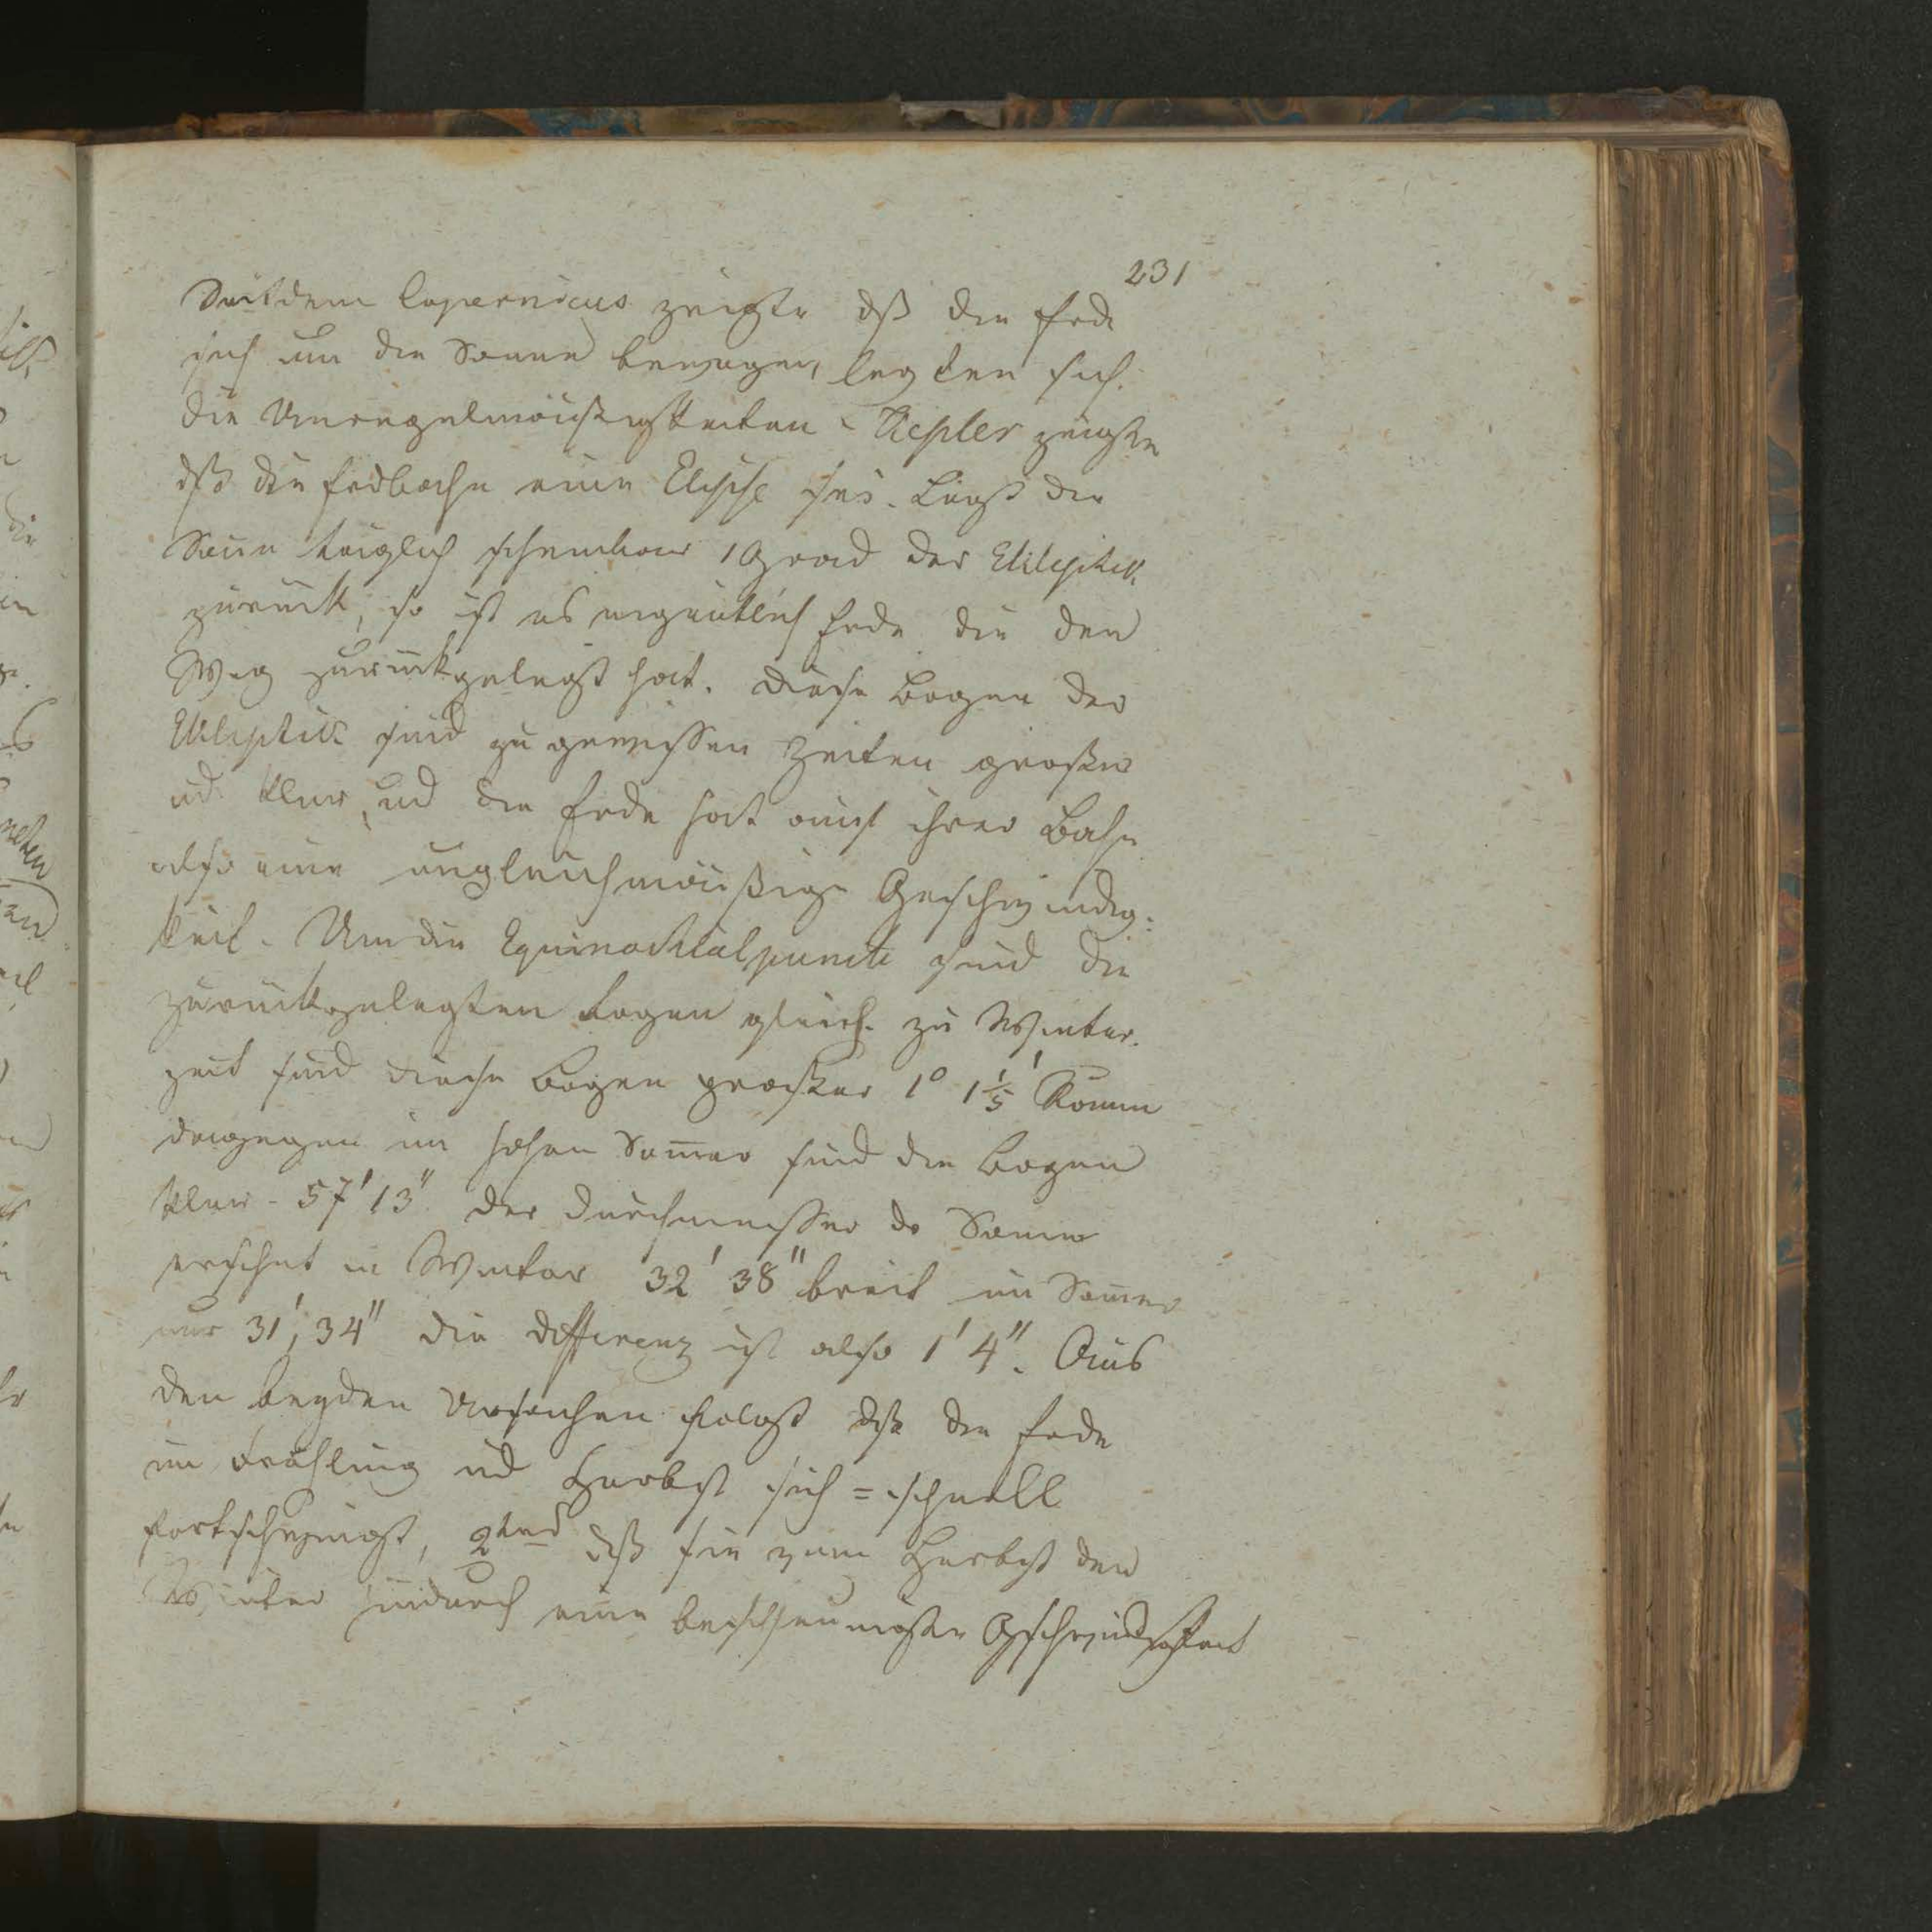 231
Seitdem Copernicus zeigte dß die Erde
sich um die Sonne bewegen, legten sich
die Unregelmäußigkeiten. Kepler zeigte
dß die Erdbahn eine Elipse sei. Legt die
Sonne täglich scheinbar 1 Grad der Ekleptik
zurück, so ist es eigentlich Erde die den
Weg zurückgelegt hat. Diese Bogen der
Ekleptik sind zu gewissen Zeiten großer
ud. klein, und die Erde hat auf ihrer Bahn
also eine ungleichmäußige Geschwindig:
keit. Um die Equinoctialpuncte sind die
zurückgelegten Bogen gleich. zu Winter.
zeit sind diese Bogen groeßer 1° 1 1/5'
dagegen im hohen Somer sind die Bogen
klein - 57' 13". Der Durchmesser de Sonne
erscheint in Winter 32' 38" breit im Somer
nur 31', 34" die Differenz ist also 1' 4". Aus
den beyden Ursachen folgt dß die Erde
im Frühling ud Herbst sich = schnell
fortschwingt, 2tens dß sie zum Herbst den
Winter hindurch eine beschleunigte Geschwindigkeit